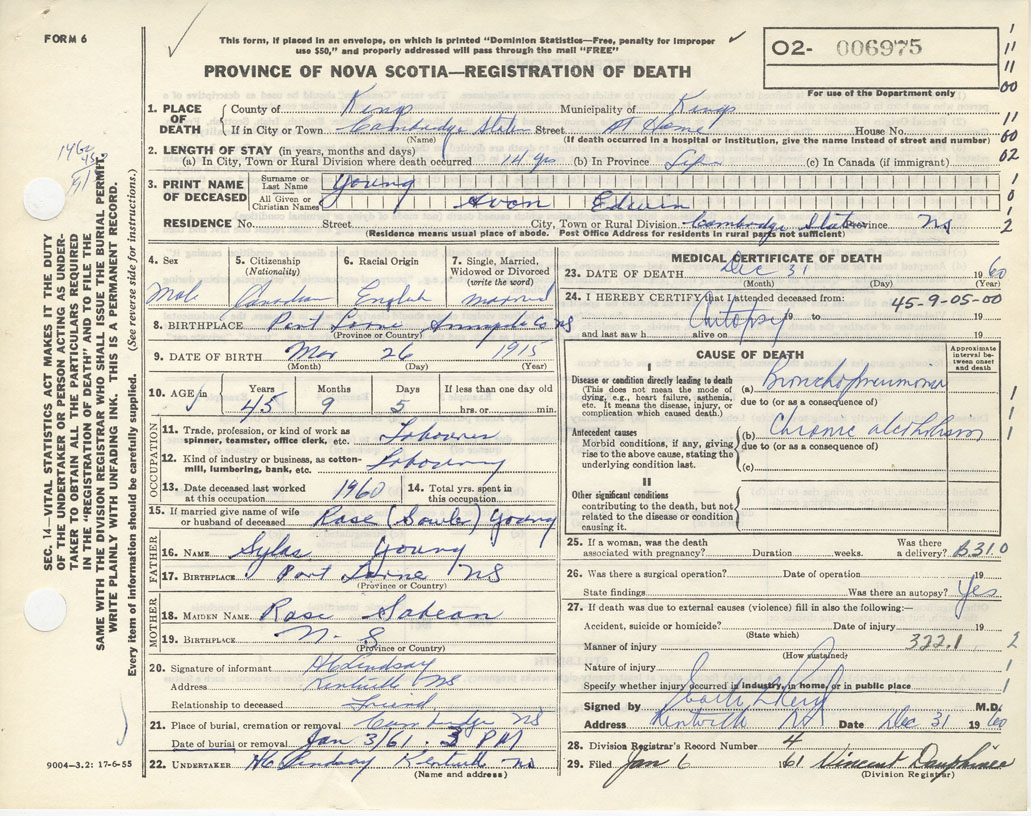 FORM 6
This form, if placed in an envelope, on which is printed "Dominion Statistics—Free, penalty for improper
use $50," and properly addressed will pass through the mail "FREE"
PROVINCE OF NOVA SCOTIA—REGISTRATION OF DEATH
O2- 006975
For use of the Department only
1. PLACE OF DEATH
County of Kings Municipality of Kings
If in City or Town Cambridge Station Street At Home House No.
(Name) (If death occurred in a hospital or institution, give the name instead of street and number)
2. LENGTH OF STAY (in years, months and days)
(a) In City, Town or Rural Division where death occurred 14 yrs (b) In Province Life (c) In Canada (if immigrant)
3. PRINT NAME OF DECEASED
Surname or Last Name Young
All Given or Christian Names Avon Edwin
RESIDENCE No. Street City, Town or Rural Division Cambridge Station Province NS
(Residence means usual place of abode. Post Office Address for residents in rural parts not sufficient)
4. Sex 5. Citizenship (Nationality) 6. Racial Origin 7. Single, Married, Widowed or Divorced (write the word)
Male Canadian English married
8. BIRTHPLACE Port Lorne Annapolis Co NS
(Province or Country)
9. DATE OF BIRTH Mar 26 1915
(Month) (Day) (Year)
10. AGE Years Months Days If less than one day old
45 9 5 hrs. or min.
OCCUPATION
11. Trade, profession, or kind of work as spinner, teamster, office clerk, etc. Labourer
12. Kind of industry or business, as cotton-mill, lumbering, bank, etc. Labouring
13. Date deceased last worked at this occupation 1960
14. Total yrs. spent in this occupation
15. If married give name of wife or husband of deceased Rose (Sawler) Young
FATHER
16. NAME Sylas Young
17. BIRTHPLACE Port Lorne NS
(Province or Country)
MOTHER
18. MAIDEN NAME Rose Sabean
19. BIRTHPLACE N. S
(Province or Country)
20. Signature of informant HC Lindsay
Address Kentville NS
Relationship to deceased Friend
21. Place of burial, cremation or removal Cambridge NS
Date of burial or removal Jan 3/61. 3 PM
22. UNDERTAKER HC Lindsay Kentville NS
(Name and address)
MEDICAL CERTIFICATE OF DEATH
23. DATE OF DEATH Dec 31 1960
(Month) (Day) (Year)
24. I HEREBY CERTIFY that I attended deceased from: 45-9-05-00
Autopsy 19 to 19
and last saw h alive on 19
CAUSE OF DEATH
Approximate interval between onset and death
I
Disease or condition directly leading to death
(This does not mean the mode of dying, e.g., heart failure, asthenia, etc. It means the disease, injury, or complication which caused death.)
(a) Bronchopneumonia
due to (or as a consequence of)
Antecedent causes
Morbid conditions, if any, giving rise to the above cause, stating the underlying condition last.
(b) Chronic alcoholism
due to (or as a consequence of)
(c)
II
Other significant conditions
contributing to the death, but not related to the disease or condition causing it.
25. If a woman, was the death associated with pregnancy? Duration weeks. Was there a delivery? B.31.0
26. Was there a surgical operation? Date of operation 19
State findings Was there an autopsy? Yes
27. If death was due to external causes (violence) fill in also the following:—
Accident, suicide or homicide? Date of injury 19
(State which)
Manner of injury 322.1
(How sustained)
Nature of injury
Specify whether injury occurred in industry, in home, or in public place
Signed by M.D.
Address Kentville NS Date Dec 31 1960
28. Division Registrar's Record Number 4
29. Filed Jan 6 1961 Vincent Dauphinee
(Division Registrar)
SEC. 14—VITAL STATISTICS ACT MAKES IT THE DUTY
OF THE UNDERTAKER OR PERSON ACTING AS UNDER-
TAKER TO OBTAIN ALL THE PARTICULARS REQUIRED
IN THE "REGISTRATION OF DEATH" AND TO FILE THE
SAME WITH THE DIVISION REGISTRAR WHO SHALL ISSUE THE BURIAL PERMIT.
WRITE PLAINLY WITH UNFADING INK. THIS IS A PERMANENT RECORD.
Every item of information should be carefully supplied. (See reverse side for instructions.)
9004—3.2: 17-6-55